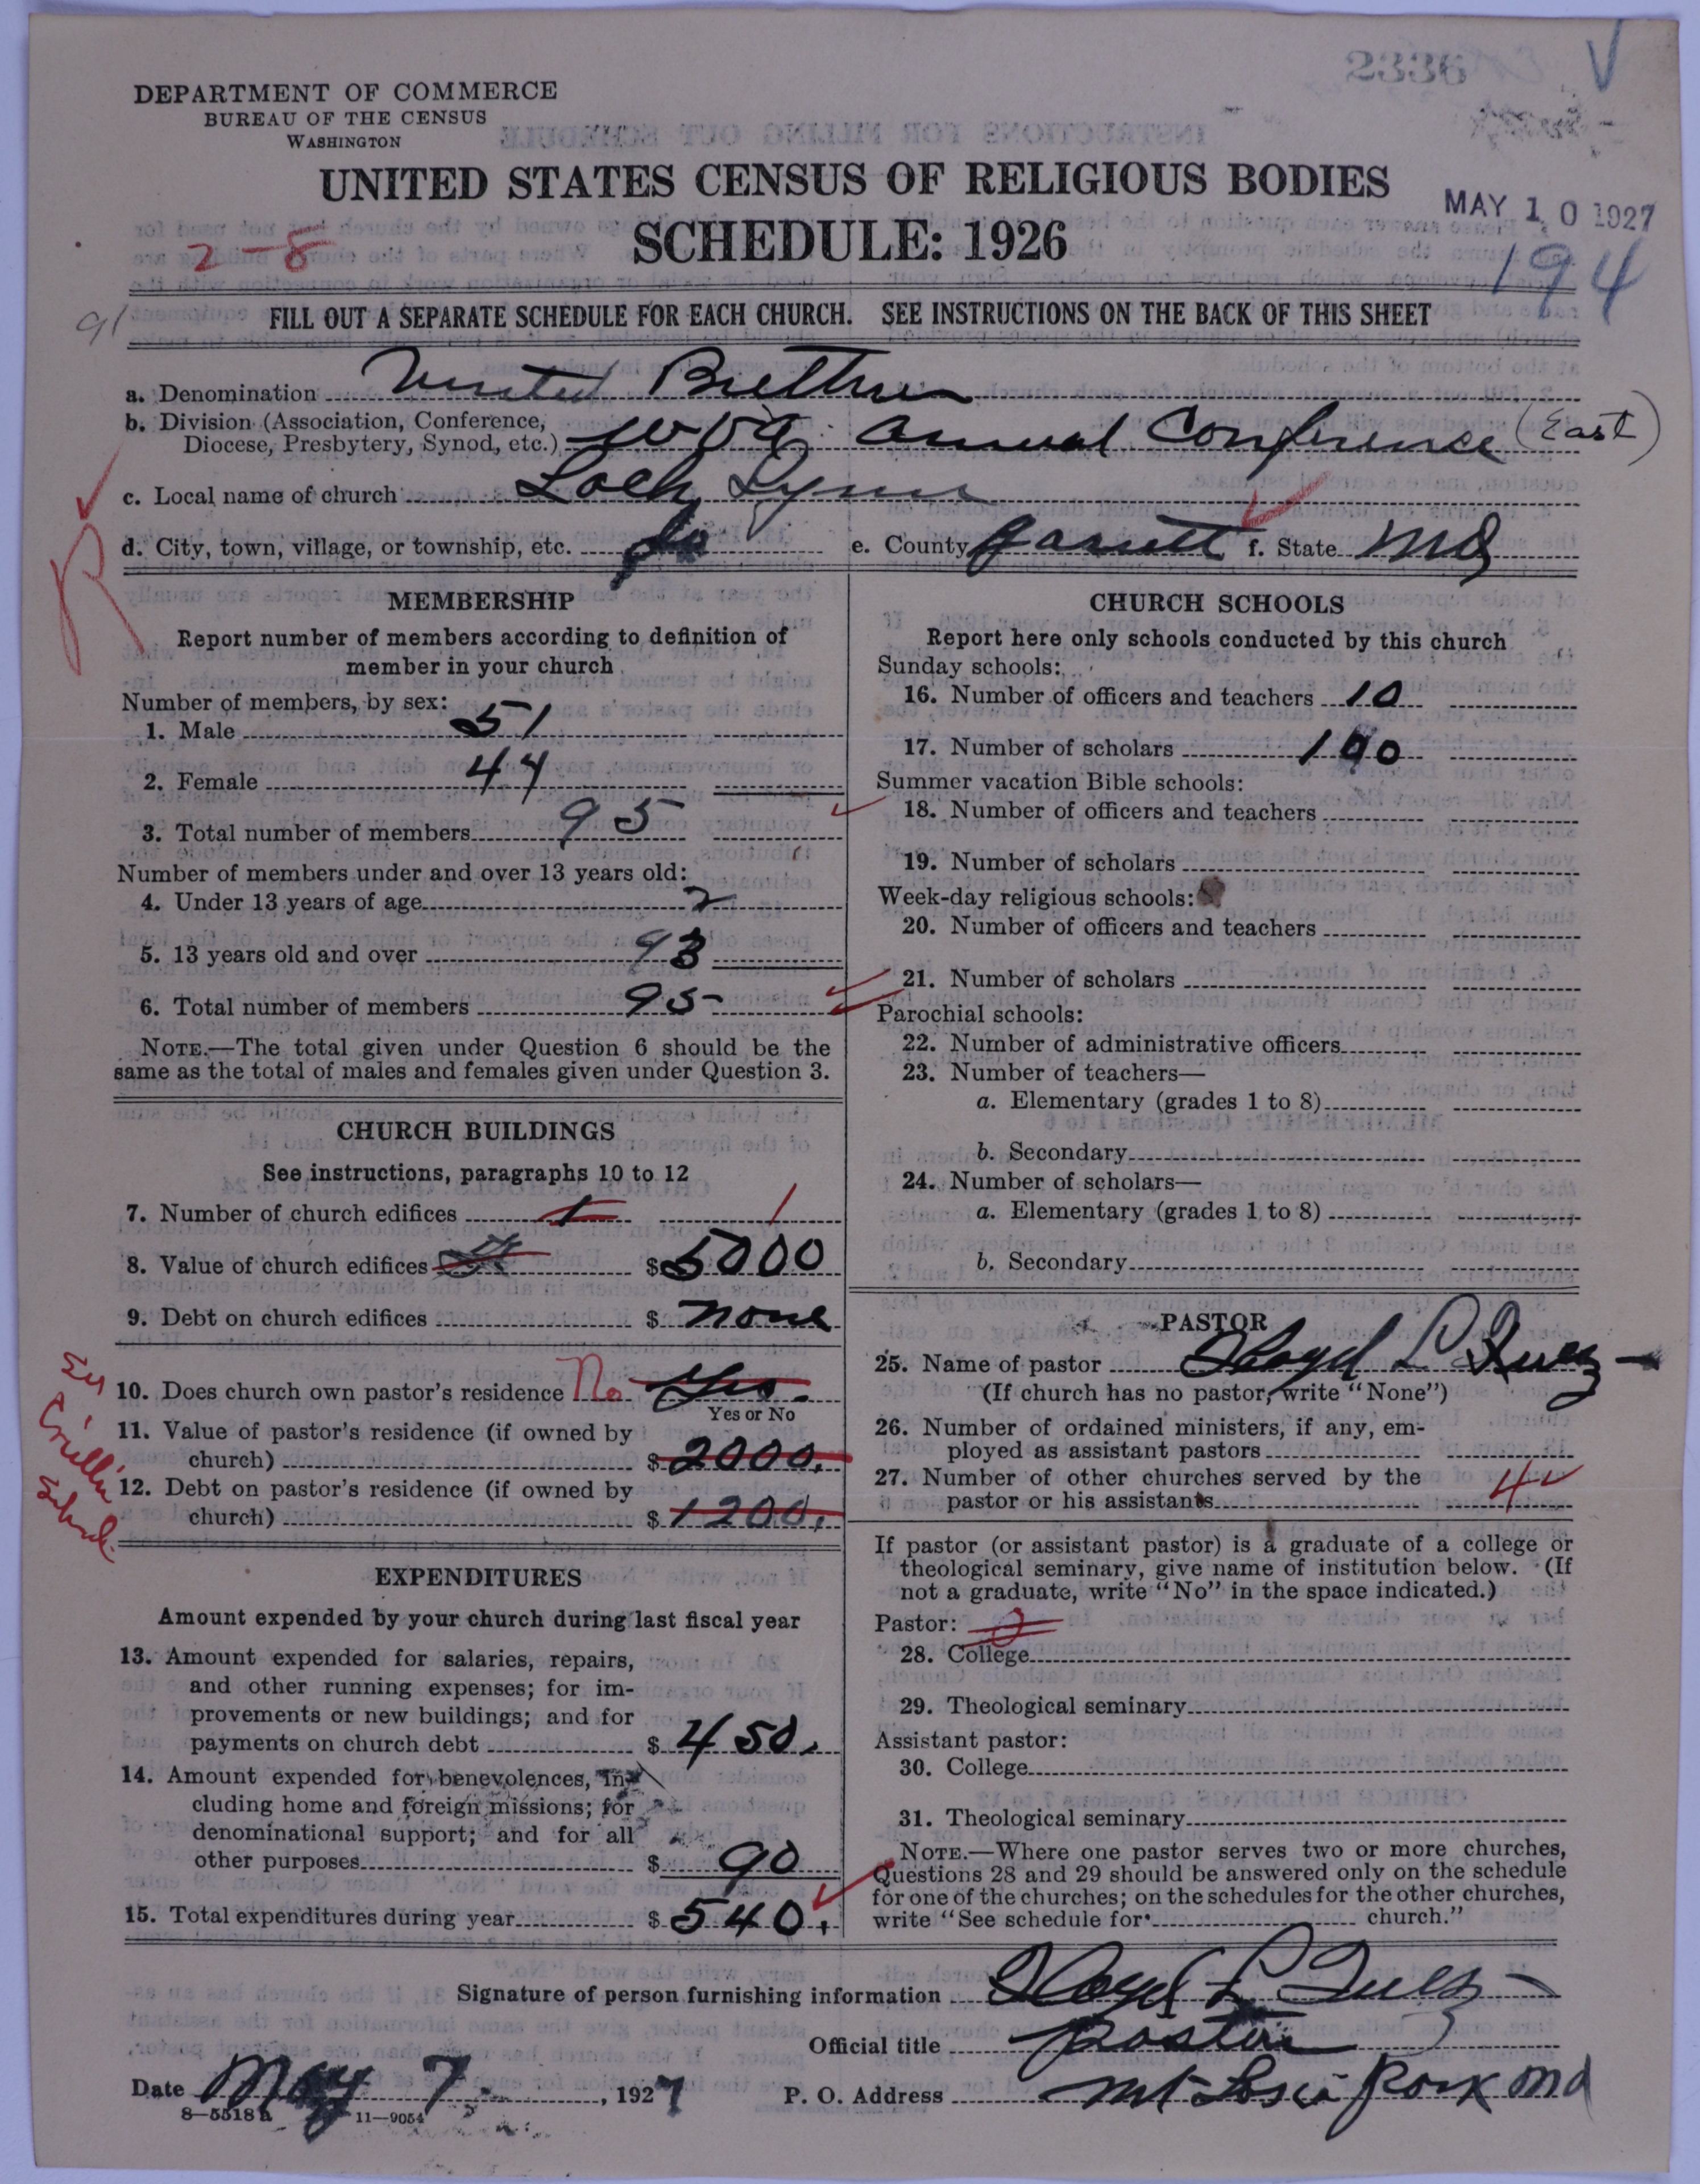 2336
DEPARTMENT OF COMMERCE
BUREAU OF THE CENSUS
WASHINGTON
UNITED STATES CENSUS OF RELIGIOUS BODIES
SCHEDULE: 1926
MAY 10 1927
194
2-8
91
FILL OUT A SEPARATE SCHEDULE FOR EACH CHURCH. SEE INSTRUCTIONS ON THE BACK OF THIS SHEET
a. Denomination United Brethren
b. Division (Association, Conference,
Diocese, Presbytery, Synod, etc.) W Va Annual Conference (East)
c. Local name of church Loch Lynn
d. City, town, village, or township, etc. do e. County Garrett f. State Md
R
MEMBERSHIP
Report number of members according to definition of
member in your church
Number of members, by sex:
1. Male 51
2. Female 44
3. Total number of members 95
Number of members under and over 13 years old:
4. Under 13 years of age 2
5. 13 years old and over 93
6. Total number of members 95
NOTE.—The total given under Question 6 should be the
same as the total of males and females given under Question 3.
CHURCH BUILDINGS
See instructions, paragraphs 10 to 12
7. Number of church edifices 1 1
8. Value of church edifices $ 5000
9. Debt on church edifices $ none
10. Does church own pastor's residence No Yes.
Yes or No
11. Value of pastor's residence (if owned by
church) $ 2000.
12. Debt on pastor's residence (if owned by
church) $ 1200.
EXPENDITURES
Amount expended by your church during last fiscal year
13. Amount expended for salaries, repairs,
and other running expenses; for im-
provements or new buildings; and for
payments on church debt $ 450.
14. Amount expended for benevolences, in-
cluding home and foreign missions; for
denominational support; and for all
other purposes $ 90
15. Total expenditures during year $ 540.
CHURCH SCHOOLS
Report here only schools conducted by this church
Sunday schools:
16. Number of officers and teachers 10
17. Number of scholars 100
Summer vacation Bible schools:
18. Number of officers and teachers
19. Number of scholars
Week-day religious schools:
20. Number of officers and teachers
21. Number of scholars
Parochial schools:
22. Number of administrative officers
23. Number of teachers—
a. Elementary (grades 1 to 8)
b. Secondary
24. Number of scholars—
a. Elementary (grades 1 to 8)
b. Secondary
PASTOR
25. Name of pastor Lloyd L
(If church has no pastor, write "None")
26. Number of ordained ministers, if any, em-
ployed as assistant pastors
27. Number of other churches served by the
pastor or his assistants 4
If pastor (or assistant pastor) is a graduate of a college or
theological seminary, give name of institution below. (If
not a graduate, write "No" in the space indicated.)
Pastor:
28. College
29. Theological seminary
Assistant pastor:
30. College
31. Theological seminary
NOTE.—Where one pastor serves two or more churches,
Questions 28 and 29 should be answered only on the schedule
for one of the churches; on the schedules for the other churches,
write "See schedule for church."
Signature of person furnishing information Lloyd L
Official title pastor
Date May 7, 1927 P. O. Address Mt Park Md
8—5518 a 11—9054